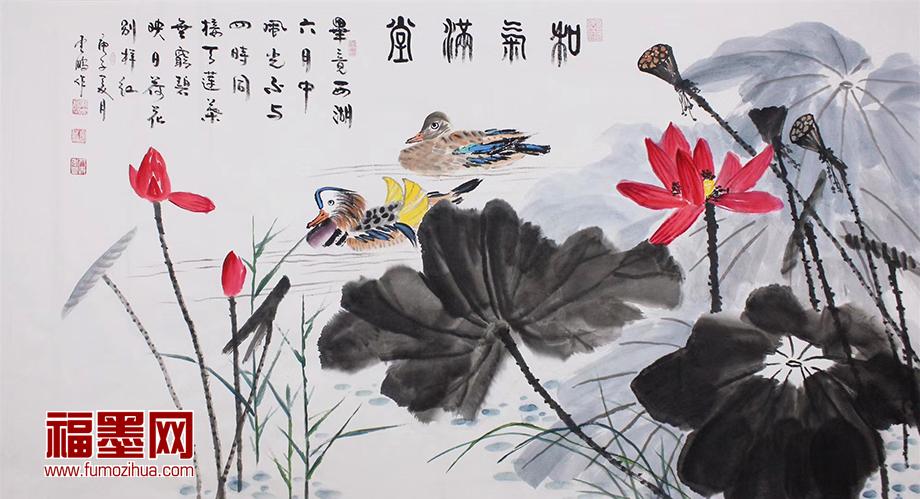 和氣滿堂
畢竟西湖
六月中
風光不与
四時同
接天蓮葉
無窮碧
映日荷花
別樣紅
庚子夏月
作
福墨网
www.fumozihua.com